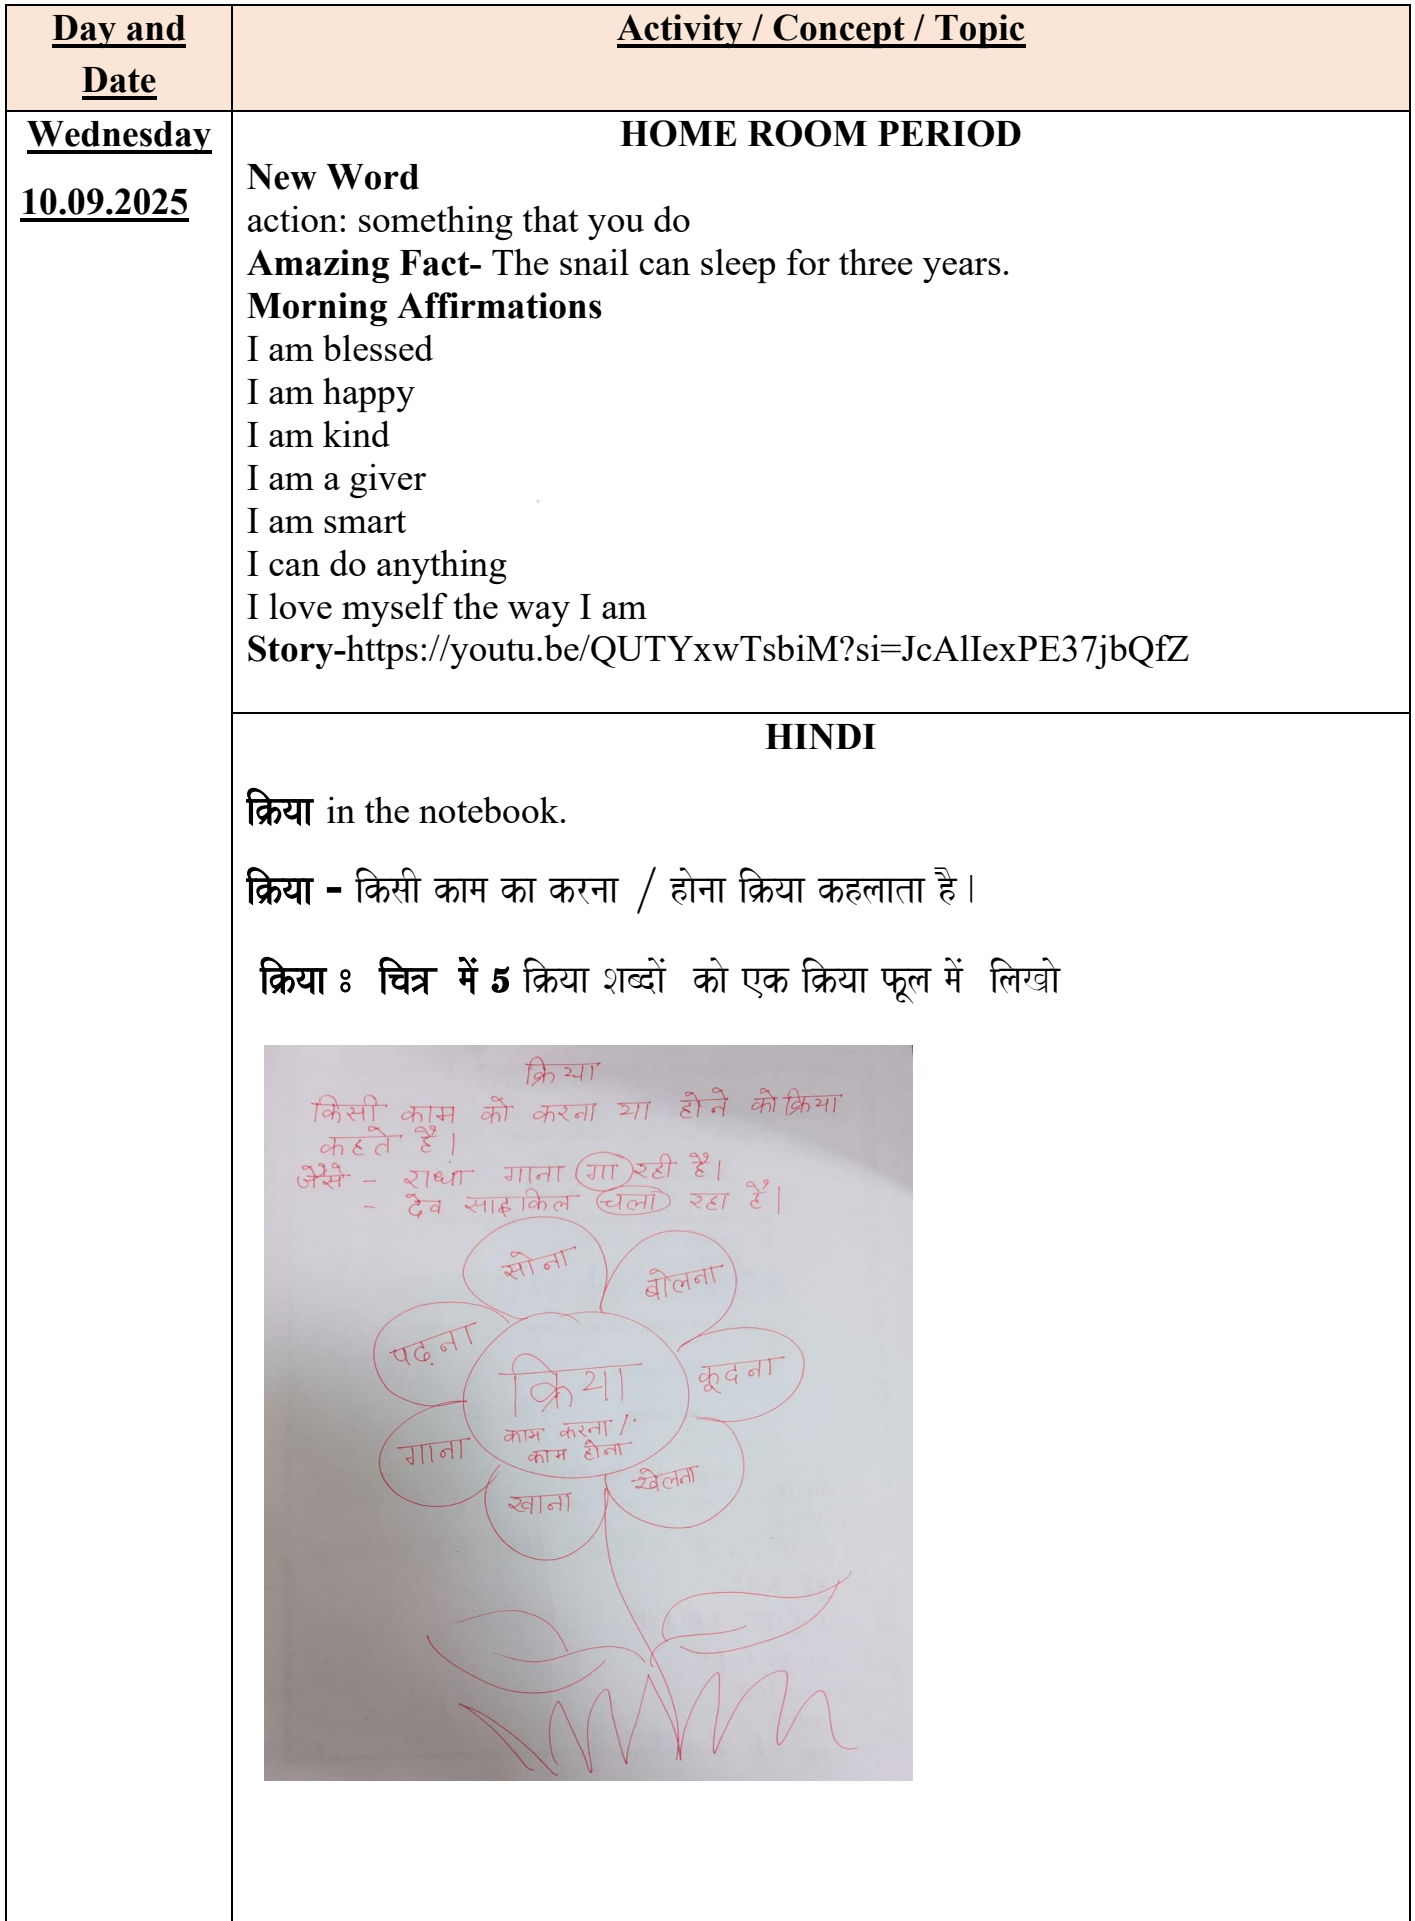 Day and
Date
Activity / Concept / Topic
Wednesday
10.09.2025
HOME ROOM PERIOD
New Word
action: something that you do
Amazing Fact- The snail can sleep for three years.
Morning Affirmations
I am blessed
I am happy
I am kind
I am a giver
I am smart
I can do anything
I love myself the way I am
Story-https://youtu.be/QUTYxwTsbiM?si=JcAlIexPE37jbQfZ
HINDI
क्रिया in the notebook.
क्रिया - किसी काम का करना / होना क्रिया कहलाता है।
क्रिया : चित्र में 5 क्रिया शब्दों को एक क्रिया फूल में लिखो
क्रिया
किसी काम को करना या होने को क्रिया
कहते है।
जैसे - राधा गाना गा रही है।
- देव साइकिल चला रहा है।
सोना
बोलना
पढ़ना
कूदना
क्रिया
काम करना /
काम होना
गाना
खेलना
खाना